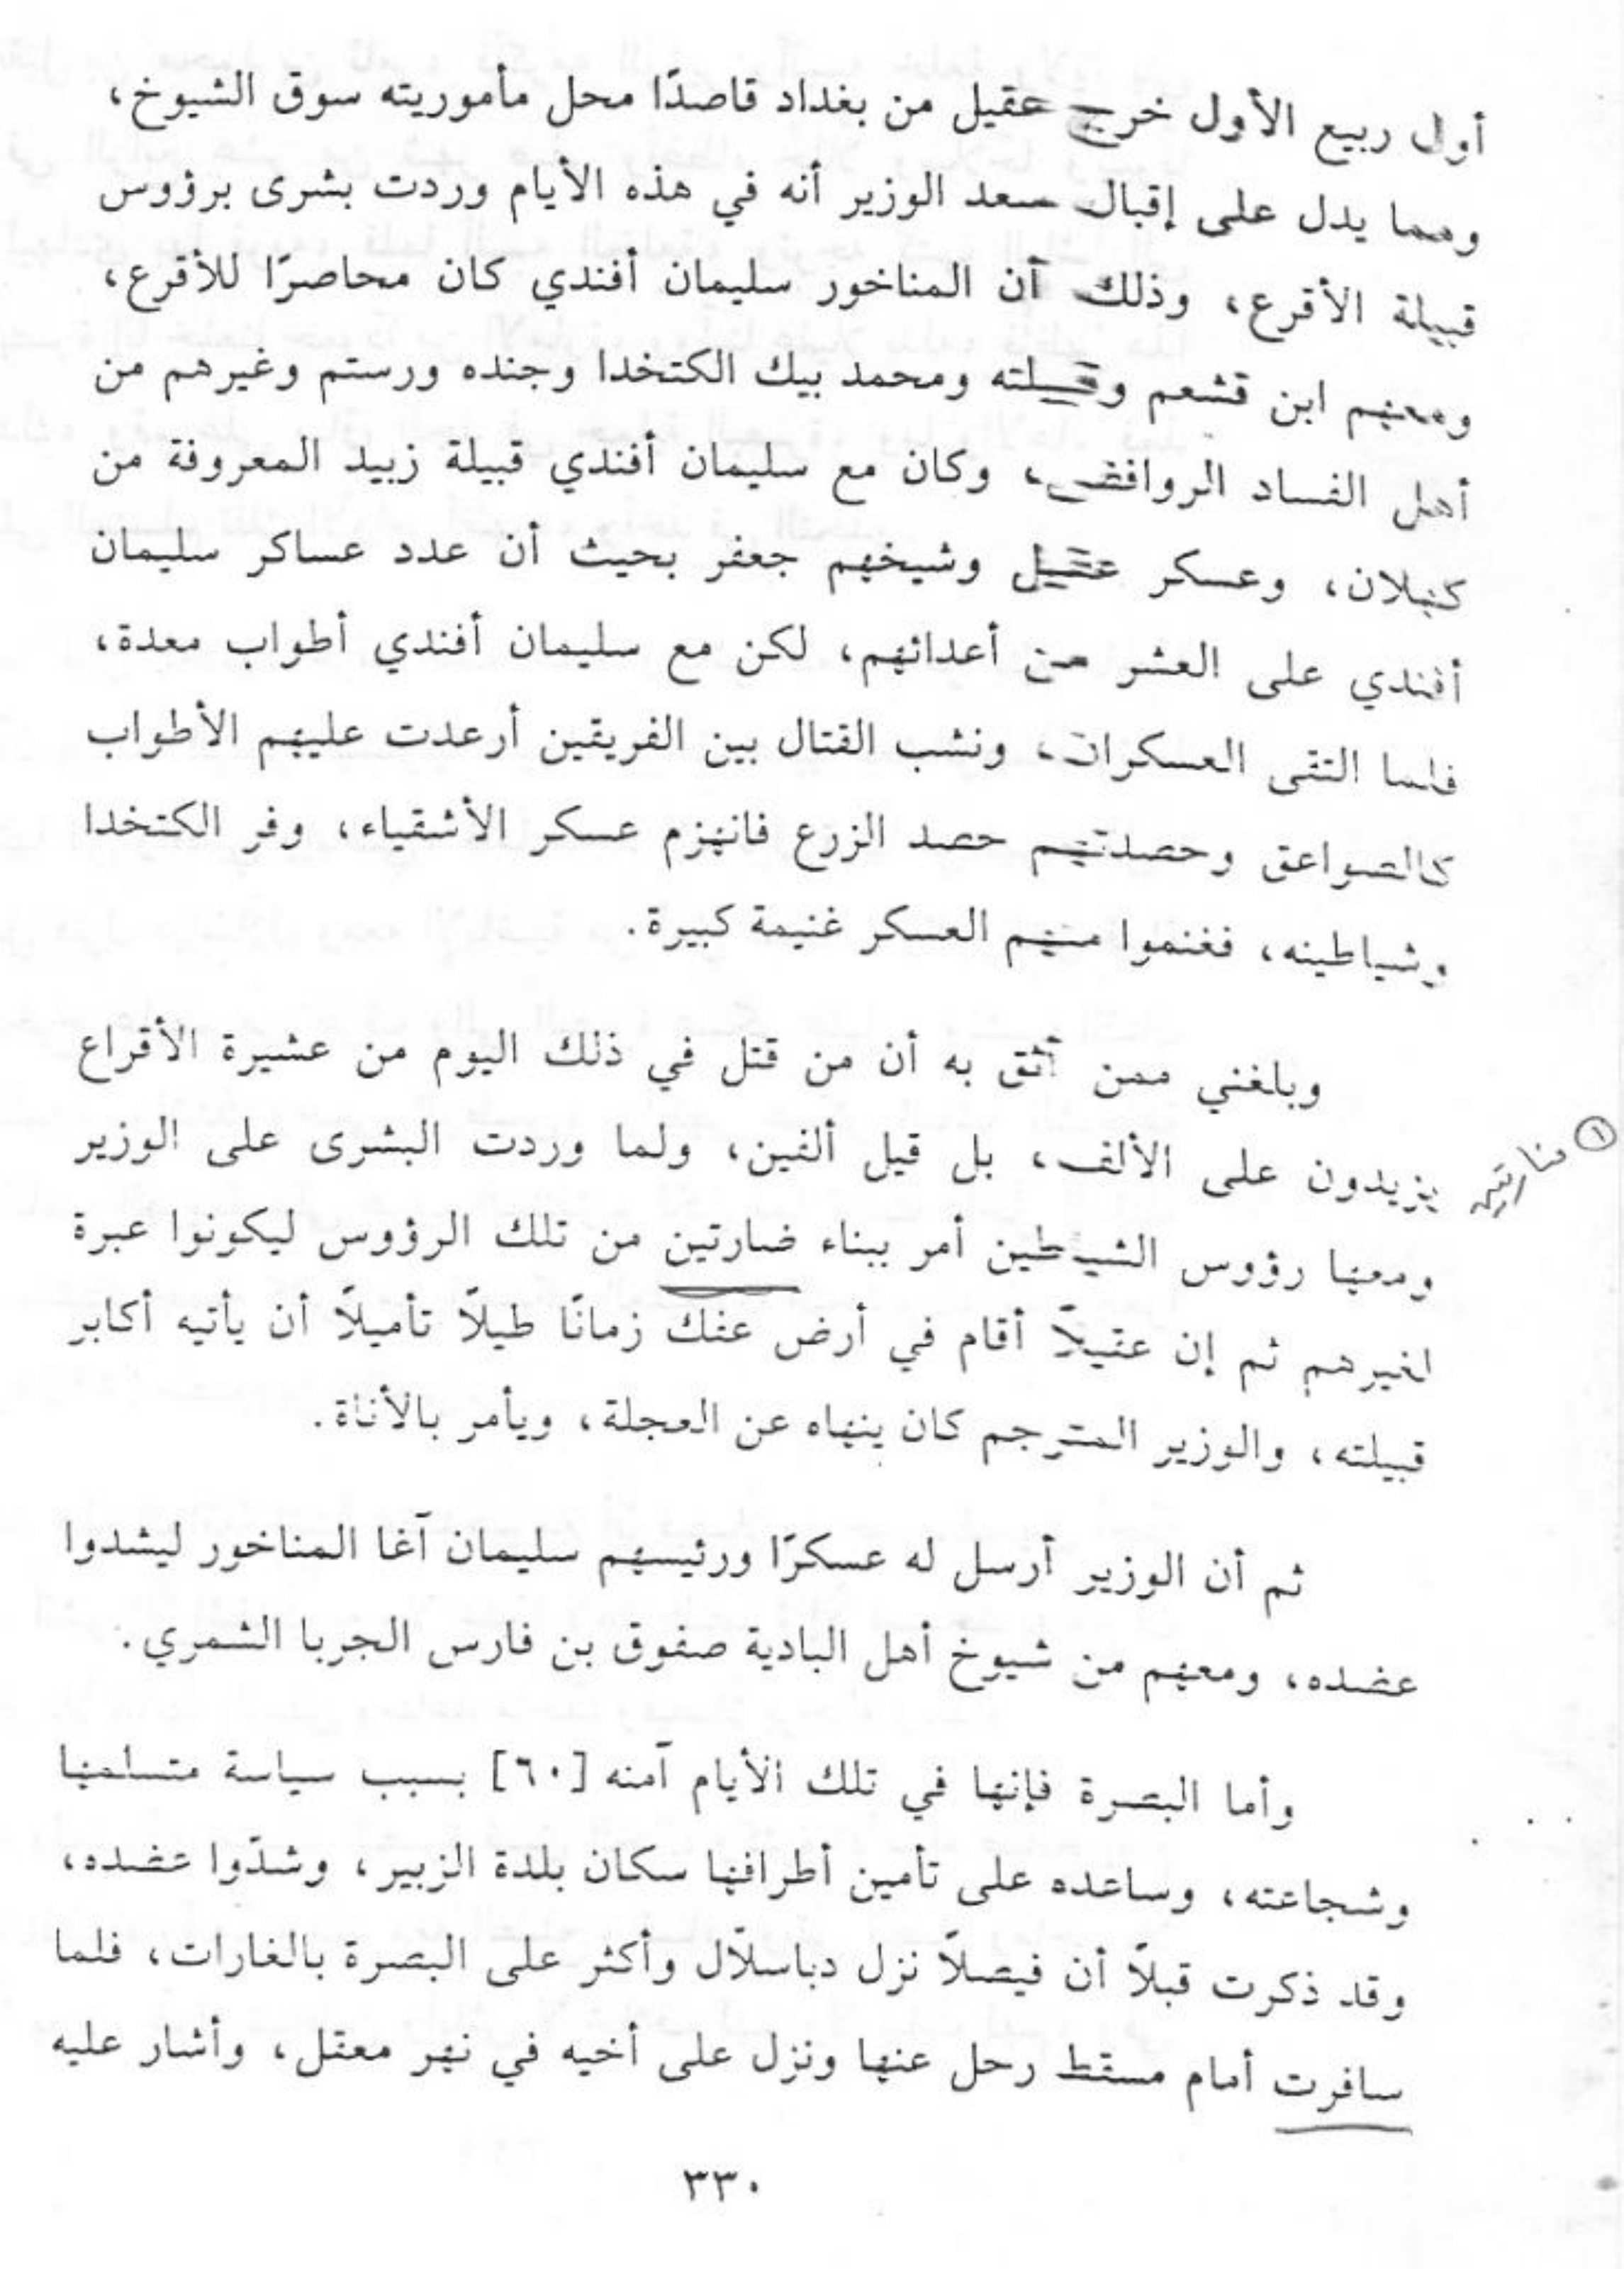 أول ربيع الأول خرج عقيل من بغداد قاصدًا محل مأموريته سوق الشيوخ،
ومما يدل على إقبال سعد الوزير أنه في هذه الأيام وردت بشرى برؤوس
قبيلة الأقرع، وذلك أن المناخور سليمان أفندي كان محاصرًا للأقرع،
ومعهم ابن قشعم وقبيلته ومحمد بيك الكتخدا وجنده ورستم وغيرهم من
أهل الفساد الروافض، وكان مع سليمان أفندي قبيلة زبيد المعروفة من
كهلان، وعسكر عقيل وشيخهم جعفر بحيث أن عدد عساكر سليمان
أفندي على العشر من أعدائهم، لكن مع سليمان أفندي أطواب معدة،
فلما التقى العسكران، ونشب القتال بين الفريقين أرعدت عليهم الأطواب
كالصواعق وحصدتهم حصد الزرع فانهزم عسكر الأشقياء، وفر الكتخدا
وشياطينه، فغنموا منهم العسكر غنيمة كبيرة.
وبلغني ممن أثق به أن من قتل في ذلك اليوم من عشيرة الأقراع
يزيدون على الألف، بل قيل ألفين، ولما وردت البشرى على الوزير
① منارتين
ومعها رؤوس الشياطين أمر ببناء ضارتين من تلك الرؤوس ليكونوا عبرة
لغيرهم ثم إن عقيلاً أقام في أرض عفك زمانًا طيلاً تأميلاً أن يأتيه أكابر
قبيلته، والوزير المترجم كان ينهاه عن العجلة، ويأمر بالأناة.
ثم أن الوزير أرسل له عسكرًا ورئيسهم سليمان آغا المناخور ليشدوا
عضده، ومعهم من شيوخ أهل البادية صفوق بن فارس الجربا الشمري.
وأما البصرة فإنها في تلك الأيام آمنه [٦٠] بسبب سياسة متسلمها
وشجاعته، وساعده على تأمين أطرافها سكان بلدة الزبير، وشدّوا عضده،
وقد ذكرت قبلاً أن فيصلاً نزل دباسلاّل وأكثر على البصرة بالغارات، فلما
سافرت أمام مسقط رحل عنها ونزل على أخيه في نهر معقل، وأشار عليه
٣٣٠